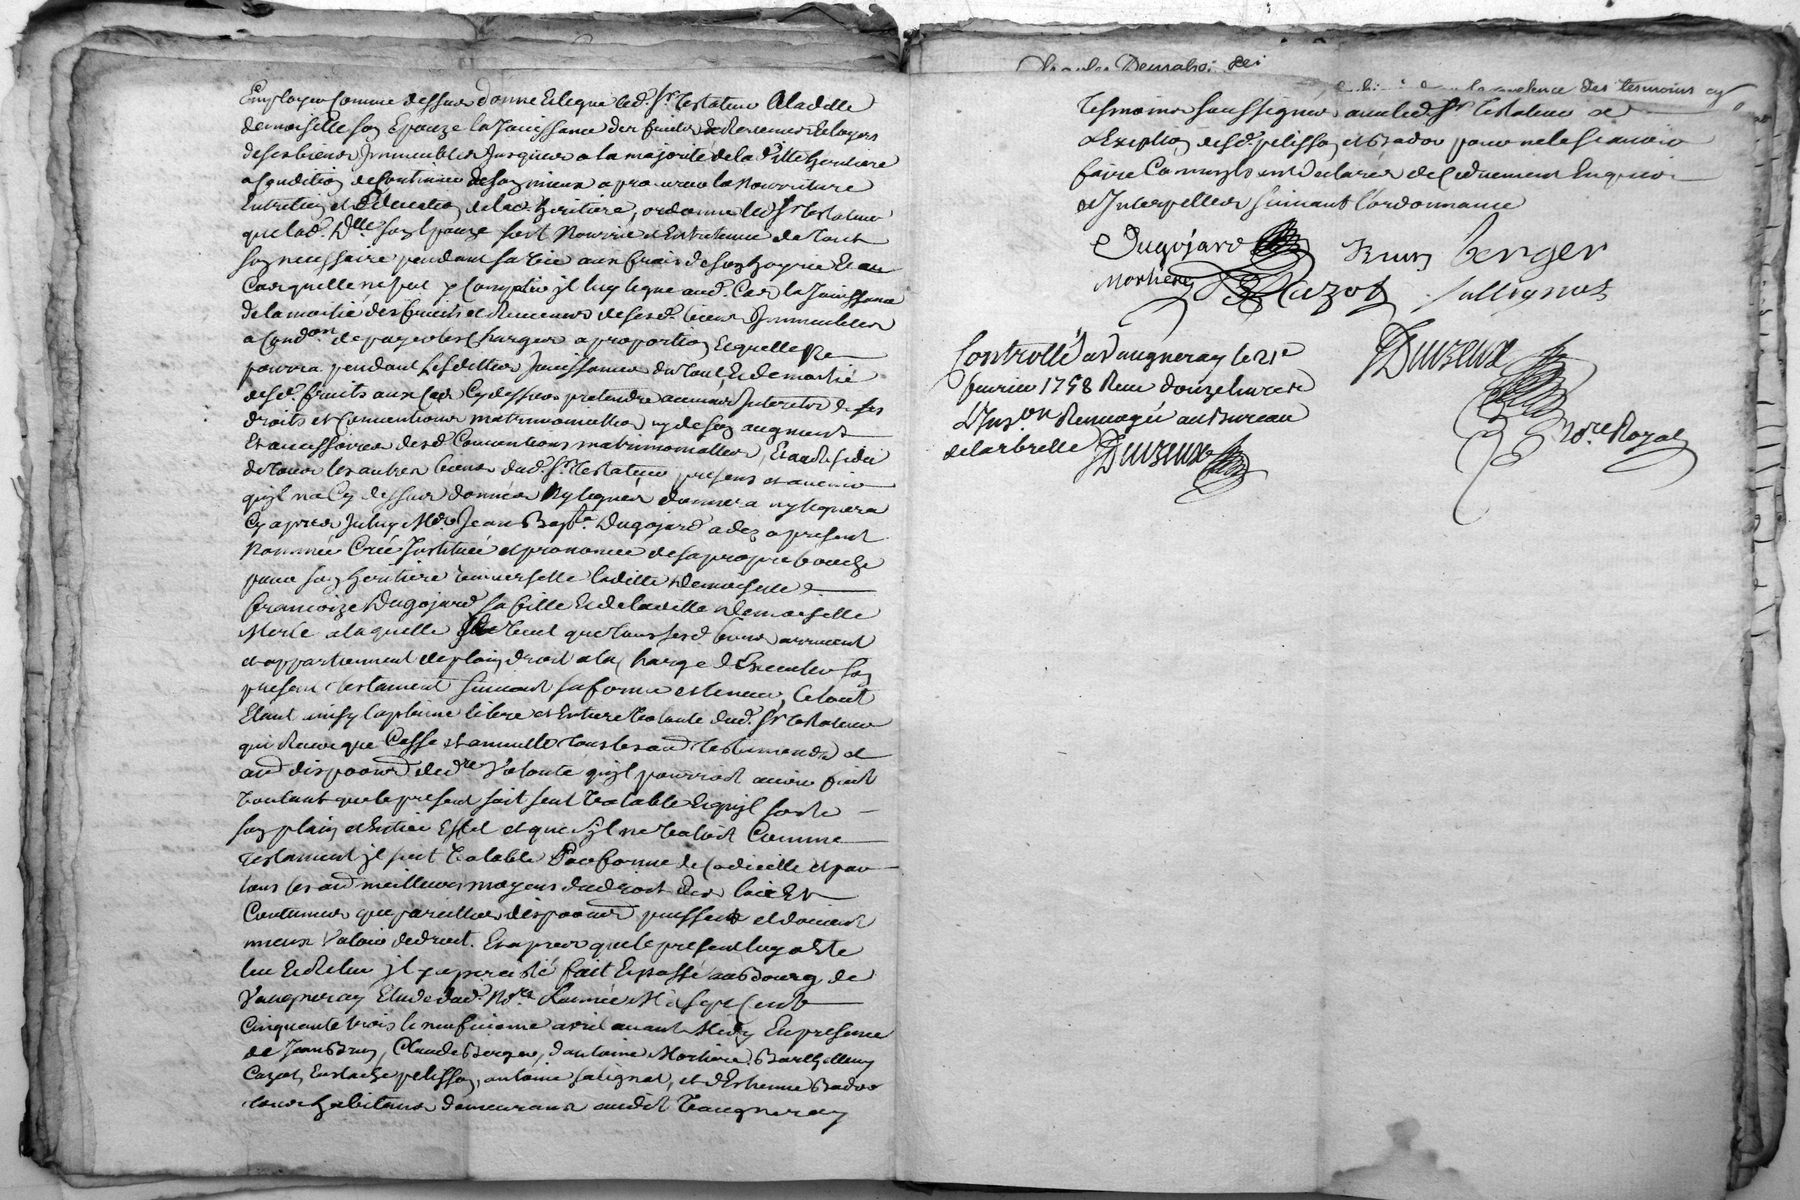 Employer comme dessus donne et legue led. Sr testateur a ladille
demoiselle son Epouze la jouissance des fruits et Revenus et loyers
de ses biens Immeubles jusques a la majorité de lad. fille heritiere
a condition de continuer de son mieux a procurer la nourriture
Entretien et Education de lad. heritiere, ordonne led Sr testateur
que lad. Dlle son Epouze soit nourrie et Entretenue de tout
son necessaire pendant sa vie aux frais de son hoyrie Et au
Cas quelle ne put y Compatir jl luy legue aud. Cas la jouissance
de la moitié des fruits et Revenus de sesd. biens Immeubles
a Condon. de payer les Charges a proportion Et quelle ne
pourra pendant lesdittes jouissances du tout Et de moitié
desd. fruits aux Cas Cy dessus pretendre aucuns Interets de ses
droits et Conventions matrimonialles ny de son augment
Et accessoires desd. Conventions matrimonialles, Et au Residu
de tous les autres biens dud. Sr testateur presens et avenir
quil n'a Cy dessus donnés ny legués donnera ny leguera
Cy apres Iceluy Me Jean Bapte. Dugojard a dez a present
Nommée Créé Instituée et prononcée de sa propre bouche
pour son heritiere universelle laditte demoiselle
francoize Dugojard sa fille Et de laditte Demoiselle
Merle a laquelle Il veut que tous sesd. biens arrivent
et appartiennent de plain droit a la Charge d'Executer son
present testament suivant sa forme et teneur, Ce tout
Etant ainsy la plaine libre et Entiere volonté dud. Sr testateur
qui Revoque Casse et annulle tous les aud testaments et
aud dispoons de dre volonté quil pourroit avoir fait
voulant que le present soit seul valable Et quil sorte
son plain et Entier Effet et que sil ne valoit Comme
testament jl soit valable Par forme de Codicille et par
tous les aud meilleurs moyens de droit des loix Et
Coutumes que pareilles dispoons puissent et doivent
mieux valoir de droit. Et apres que le present luy a Eté
lu Et Relu jl y a persisté fait Et passé au Bourg de
Vaugneray Etude dud. Nore. L'année Mil sept Cent
Cinquante trois le neufvieme avril avant Midy En presence
de Jean Brun, Claude Berger, d'antoine Mortiere Barthellemy
Cazot, Eustache pelisson, antoine salignat, et d'Estienne Bador
tous habitans demeurans audit Vaugneray
tesmoins
temoins soussignés avec led Sr testateur a
L'Exception desd. pelisson et Bador pour ne le scavoir
faire Comme ils ont declarés de Ce duement Enquis
et Interpellés suivant l'ordonnance
Dugojard Brun Berger
Mortiere Cazot Sallignat
Controllé a Vaugneray le 21e
fevrier 1758 Reçu douze livres
L'Inson Renvoyée au Bureau
de Larbrelle
Duizeux
Duizeux
Nore. Royal